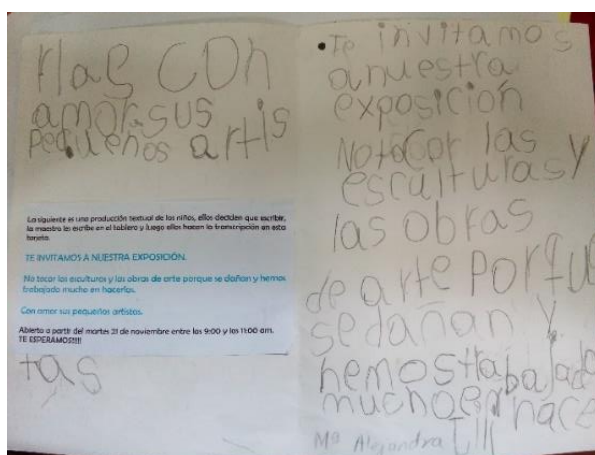 rlas CON
amor sus
Pequeños artis
La siguiente es una producción textual de los niños, ellos deciden que escribir,
la maestra lo escribe en el tablero y luego ellos hacen la transcripción en esta
tarjeta.
TE INVITAMOS A NUESTRA EXPOSICIÓN.
No tocar las esculturas y las obras de arte porque se dañan y hemos
trabajado mucho en hacerlas.
Con amor sus pequeños artistas.
Abierto a partir del martes 21 de noviembre entre las 9:00 y las 11:00 am.
TE ESPERAMOS!!!!
tas
• Te invitamos
a nuestra
exposición
No tocar las
esculturas y
las obras
de arte Porqu
se dañan y
hemos trabajado
mucho en hace
Mª Alejandra